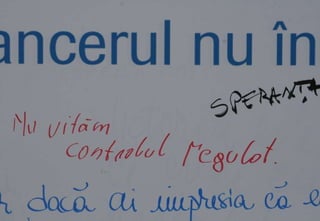 ancerul nu în
SPERANȚA
Nu vităm
controlul regulat.
r dacă ai impresia că e